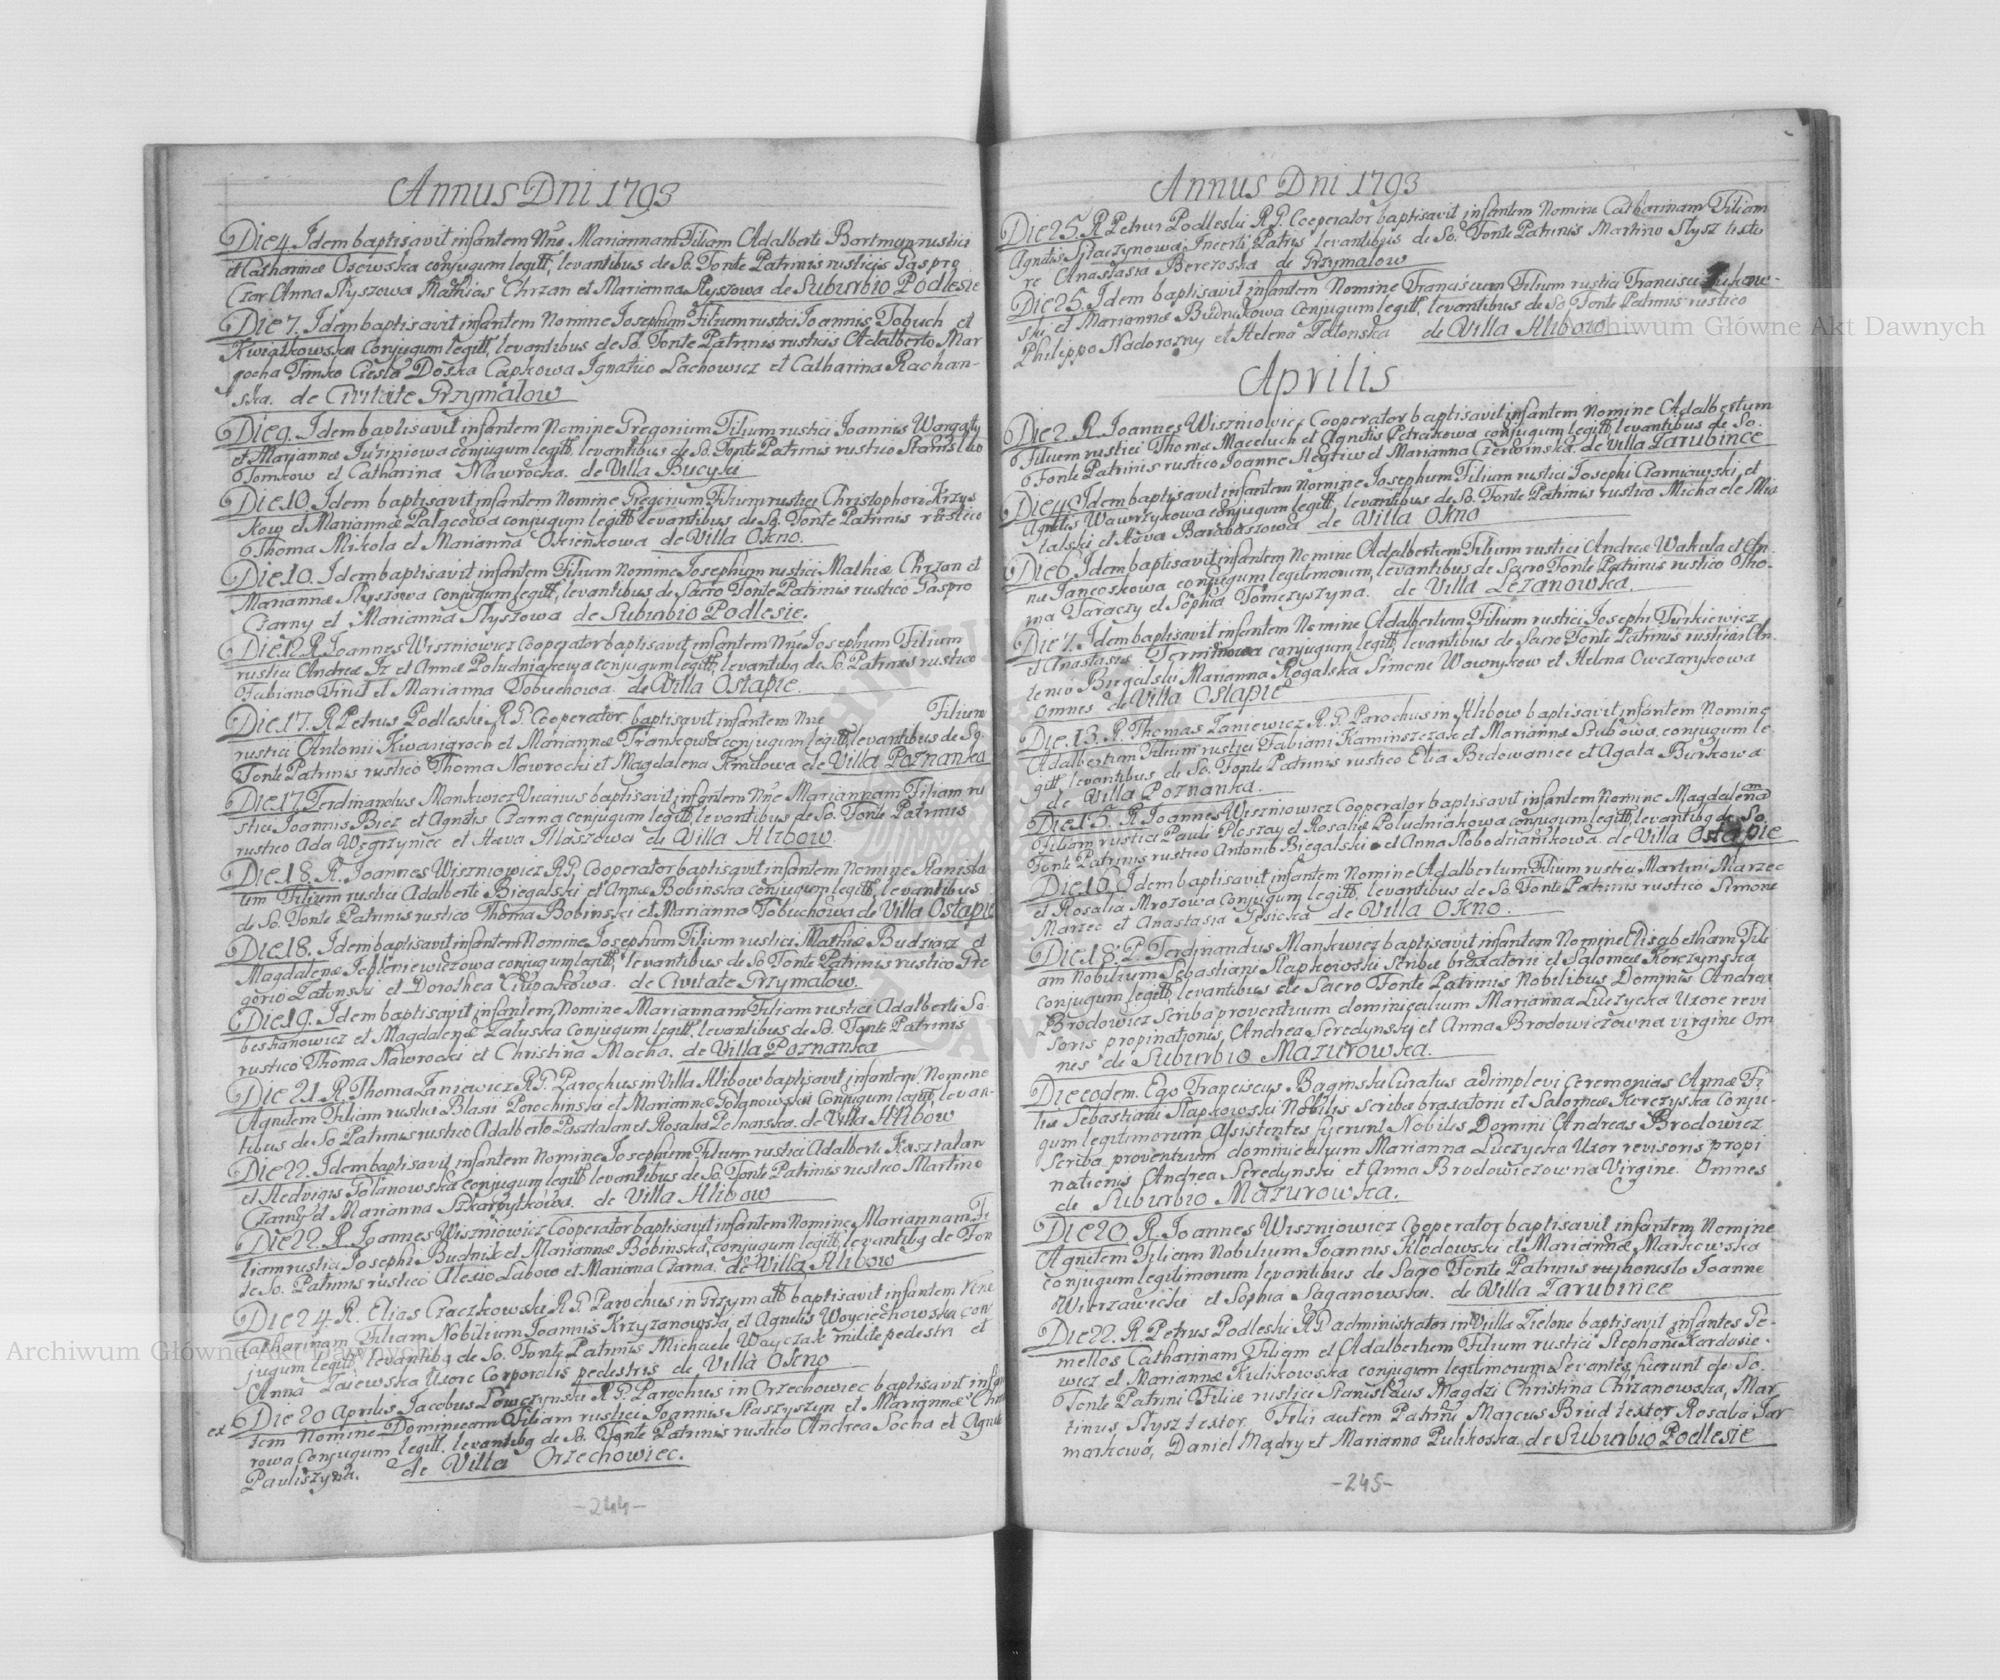 Annus Dni 1793
Die 4. Idem baptisavit infantem Nne Mariannam Filiam Adalberti Bartman rustici
et Catharinæ Osowska conjugum legitt, levantibus de So. Fonte Patrinis rusticis Gaspro
Czar Anna Slyszowa Mathias Chrzan et Marianna Slyszowa de Suburbio Podlesie
Die 7. Idem baptisavit infantem Nomine Josephum Filium rustici Joannis Tobuch et
Kwiatkowska Conjugum legitt, levantibus de So. Fonte Patrinis rusticis Adalberto Mar
gocha Timko Ciesla Doska Capkowa Ignatio Lachowicz et Catharina Rachan-
ska. de Civitate Grzymalow
Die 9. Idem baptisavit infantem Nomine Gregorium Filium rustici Joannis
et Mariannæ conjugum legitt, levantibus de So. Fonte Patrinis rustico Stanislao
Tomkow et Catharina Nawrocka. de Villa Bucyki
Die 10. Idem baptisavit infantem Nomine Gregorium Filium rustici Christophori Krzys
kow et Mariannæ conjugum legitt levantibus de So. Fonte Patrinis rustico
Thoma Mikola et Marianna Okienkowa de Villa Okno.
Die 10. Idem baptisavit infantem Filium Nomine Josephum rustici Mathiæ Chrzan et
Mariannæ Slyszowa conjugum legitt, levantibus de Sacro Fonte Patrinis rustico Gaspro
Czarny et Marianna Slyszowa de Suburbio Podlesie.
Die 12 R Joannes Wiszniowicz Cooperator baptisavit infantem Nne Josephum Filium
rustici Andreæ Jz et Annæ Poludniakowa conjugum legitt, levantibq de So. Patrinis rustico
Fabiano Firut et Marianna Tobuchowa. de Villa Ostapie.
Die 17. R Petrus Podleski R.G. Cooperator baptisavit infantem Nne Filium
rustici Antonii Kwasigroch et Mariannæ Frankowa conjugum legitt, levantibus de So.
Fonte Patrinis rustico Thoma Nawrocki et Magdalena Kmitowa de Villa Poznanka
Die 17. Ferdinandus Mankwicz Vicarius baptisavit infantem Nne Mariannam Filiam ru
stici Joannis Biez et Agnetis Czarna conjugum legitt, levantibus de So. Fonte Patrinis
rustico Ada Wegrzyniec et Hava Illaszowa de Villa Hlibow.
Die 18. R. Joannes Wiszniowicz R.G. Cooperator baptisavit infantem Nomine Stanisla
um Filium rustici Adalberti Biegalski et Annæ Bobinska conjugum legitt, levantibus
de So. Fonte Patrinis rustico Thoma Bobinski et Marianna Tobuchowa de Villa Ostapie
Die 18. Idem baptisavit infantem Nomine Josephum Filium rustici Mathiæ Budziarz et
Magdalenæ conjugum legitt, levantibus de So Fonte Patrinis rustico Gre
gorio Tatonski et Dorothea Ciupakowa. de Civitate Grzymalow.
Die 19. Idem baptisavit infantem Nomine Mariannam Filiam rustici Adalberti So
bestianowicz et Magdalenæ Zaluska Conjugum legitt, levantibus de So. Fonte Patrinis
rustico Thoma Nawrocki et Christina Macha. de Villa Poznanka
Die 21. R. Thoma Zaniewicz R.G. Parochus in Villa Hlibow baptisavit infantem Nomine
Agnetem Filiam rustici Blasii Porochinski et Mariannæ Golanowska Conjugum legitt, levan-
tibus de So Patrinis rustico Adalberto Pasztalan et Rosalia de Villa Hlibow
Die 22. Idem baptisavit infantem Nomine Josephum Filium rustici Adalberti Kasztalan
et Hedvigis Golanowska conjugum legitt levantibus de So. Fonte Patrinis rustico Martino
Czarny et Marianna Szkarpytkowa. de Villa Hlibow
Die 22. R. Joannes Wiszniowicz Cooperator baptisavit infantem Nomine Mariannam Fi
liam rustici Josephi Budnik et Mariannæ Bobinska, conjugum legitt, levantibq de Fon
te So. Patrinis rustico Alesio Labow et Marianna Czarna. de Villa Hlibow
Die 24 R. Elias Czaczkowski R.G. Parochus in Grzymatt baptisavit infantem Nne
Catharinam Filiam Nobilium Joannis Krzyzanowski et Agnetis Woyciechowska con
jugum legitt, levantibq de So. Fonte Patrinis Michaele Woyczak milite pedestri et
Anna Zaiewska Uxore Corporalis pedestris de Villa Okno
Die 20 Aprilis Jacobus Lowczynski R.G. Parochus in Orzechowiec baptisavit infan
tem Nomine Dominicam Filiam rustici Joannis Staszyszyn et Mariannæ
rowa Conjugum legitt. levantibq de So. Fonte Patrinis rustico Andrea Socha et Agnete
Pauliszyna. de Villa Orzechowiec.
-244-
Annus Dni 1793
Die 25. R Petrus Podleski R.G. Cooperator baptisavit infantem Nomine Catharinam Filiam
Agnetis Staczynowa Incerti Patris levantibus de So. Fonte Patrinis Martino Slysz texto
re Anastasia Berezoska de Grzymalow
Die 25. Idem baptisavit infantem Nomine Franciscum Filium rustici Francisci
ski et Mariannæ Budnikowa Conjugum legitt, levantibus de So Fonte Patrinis rustico
Philippo Nadorozny et Helena Tatonska de Villa Hlibow
Aprilis
Die 2. R Joannes Wiszniowicz Cooperator baptisavit infantem Nomine Adalbertum
Filium rustici Thomæ Maceluch et Agnetis Petrikowa conjugum legitt, levantibus de So.
Fonte Patrinis rustico Joanne et Marianna Czerwinska. de Villa Zarubince
Die 4. Idem baptisavit infantem Nomine Josephum Filium rustici Josephi Czarniawski, et
Agnetis Wawrzykowa conjugum legitt, levantibus de So. Fonte Patrinis rustico Michaele Mis
talski et Hava Barabaszowa de Villa Okno
Die 6. Idem baptisavit infantem Nomine Adalbertum Filium rustici Andreæ Wakula et An
næ Jancoskowa conjugum legitimorum, levantibus de Sacro Fonte Patrinis rustico Tho-
ma Taraczy et Sophia Tomczyszyna. de Villa Lezanowka.
Die 7. Idem baptisavit infantem Nomine Adalbertum Filium rustici Josephi Turkiewicz
et Anastasiæ conjugum legitt, levantibus de Sacro Fonte Patrinis rusticis An
tonio Biegalski Marianna Rogalska Simone Wawrykow et Helena Owczarykowa
omnes de Villa Ostapie
Die 13. R. Thomas Zaniewicz R.G. Parochus in Hlibow baptisavit infantem Nomine
Adalbertum Filium rustici Fabiani Kaminszczak et Mariannæ conjugum le
gitt, levantibus de So. Fonte Patrinis rustico Elia Bidowaniec et Agata Burkowa
de Villa Poznanka.
Die 15. R Joannes Wiszniowicz Cooperator baptisavit infantem Nomine Magdalenam
Filiam rustici Pauli Pleszay et Rosaliæ Poludniakowa conjugum legitt, levantibq de So.
Fonte Patrinis rustico Antonio Biegalski et Anna Slobodzianikowa. de Villa Ostapie
Die 16 Idem baptisavit infantem Nomine Adalbertum Filium rustici Martini Marzec
et Rosalia Mrozowa conjugum legitt, levantibus de So. Fonte Patrinis rustico Simone
Marzec et Anastasia Gesicka de Villa Okno.
Die 18. P. Ferdinandus Mankwicz baptisavit infantem Nomine Elisabetham Fili
am Nobilium Sebastiani Slapkowski scribæ braxatorii et Salomeæ Korczynska
conjugum legitt, levantibus de Sacro Fonte Patrinis Nobilibus Dominis Andrea
Brodowicz Scriba proventuum dominicalium Marianna Luczycka Uxore revi
soris propinationis, Andrea Seredynski et Anna Brodowiczowna virgine Om
nes de Suburbio Mazurowka.
Die eodem. Ego Franciscus Baginski Curatus adimplevi Ceremonias Annæ Fi
liæ Sebastiani Slapkowski Nobilis Scribæ braxatorii et Salomeæ Korczyska Conju-
gum legitimorum Assistentes fuerunt Nobiles Domini Andreas Brodowicz
Scriba proventuum dominicalium Marianna Luczycka Uxor revisoris propi
nationis Andrea Seredynski et Anna Brodowiczowna Virgine. Omnes
de Suburbio Mazurowka.
Die 20. R. Joannes Wiszniowicz Cooperator baptisavit infantem Nomine
Agnetem Filiam Nobilium Joannis Klodowski et Mariannæ Markowska
conjugum legitimorum levantibus de Sacro Fonte Patrinis honesto Joanne
Wierzawicki et Sophia Saganowska. de Villa Zarubince
Die 22. R. Petrus Podleski R.G administrator in Villa Zielone baptisavit infantes Ge-
mellos Catharinam Filiam et Adalbertum Filium rustici Stephani Kardasie-
wicz et Mariannæ Kulikowska conjugum legitimorum Levantes fuerunt de So.
Fonte Patrini Filiæ rustici Stanislaus Magdzi Christina Chrzanowska, Mar
tinus Slysz textor. Filii autem Patrini Marcus Brud textor Rosalia Jar
markowa, Daniel Madry et Marianna Pulikoska. de Suburbio Podlesie
-245-
Archiwum Główne Akt Dawnych
Archiwum Główne Akt Dawnych